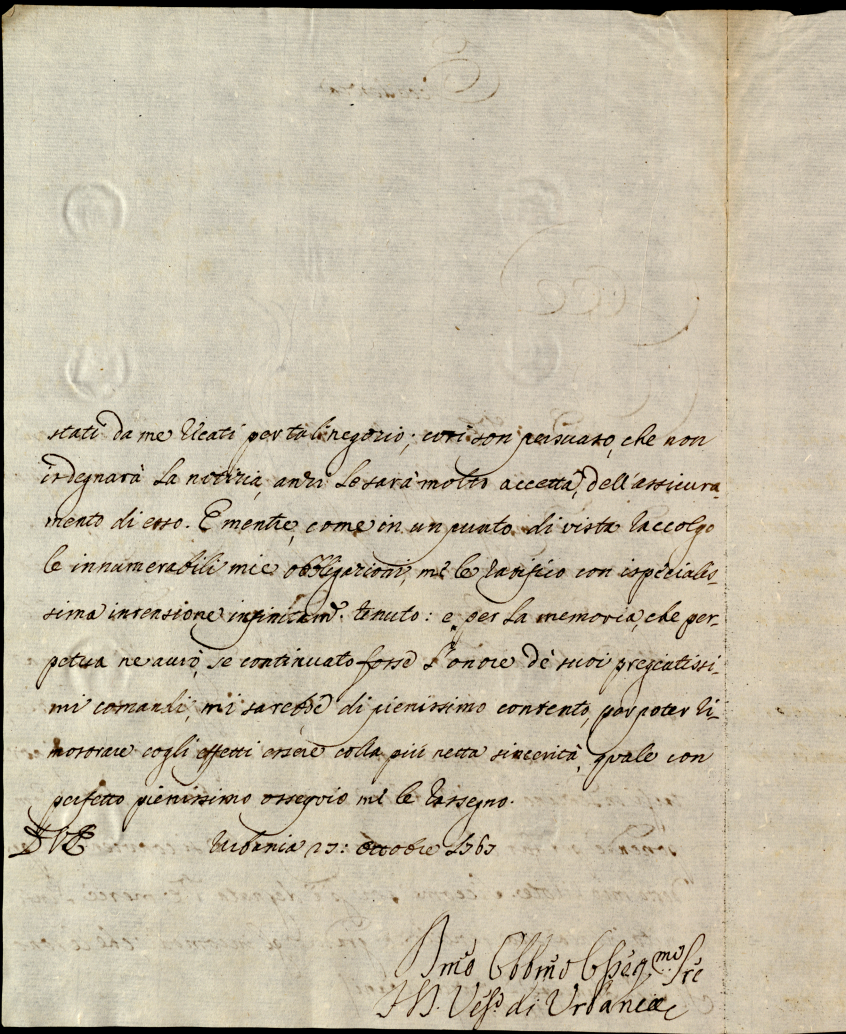 stati da me recati per tal negozio; così son persuaso, che non
isdegnarà la notizia, anzi le sarà molto accetta, dell'assicura-
mento di esso. E mentre, come in un punto di vista raccolgo
le innumerabili mie obbligazioni, me le ratifico con ispecialis-
sima intensione infinitam.e tenuto: e per la memoria, che per-
petua ne avrò, se continuato fosse l'onore de suoi pregiatissi-
mi comandi, mi sarebbe di pienissimo contento, per poter ri-
mostrare cogli effetti essere colla più netta sincerità, quale con
perfetto pienissimo ossequio me le rassegno.
Urbania 23: ottobre
Obbmo Osseq.mo Sre
Vesc.o di Urbania